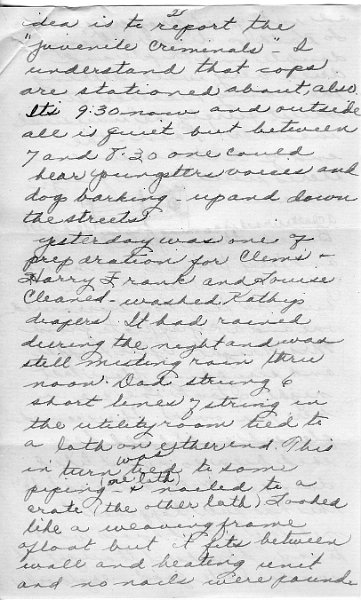 2
idea is to report the
"juvenile criminals" - I
understand that cops
are stationed about, also.
Its 9:30 now and outside
all is quiet but between
7 and 8:30 one could
hear youngsters voices and
dogs barking - up and down
the streets.
yesterday was one of
preparation for Clems -
Harry, Frank and Louise
Cleaned - washed Kathys
diapers. It had rained
during the night and was
still misting rain thru
noon. Dad strung 6
short lines of string in
the utility room tied to
a lath on either end. This
in turn was tied to some
piping (one lath) & nailed to a
crate (the other lath) Looked
like a weaving frame
afloat but it fits between
wall and heating unit
and no nails were pound-